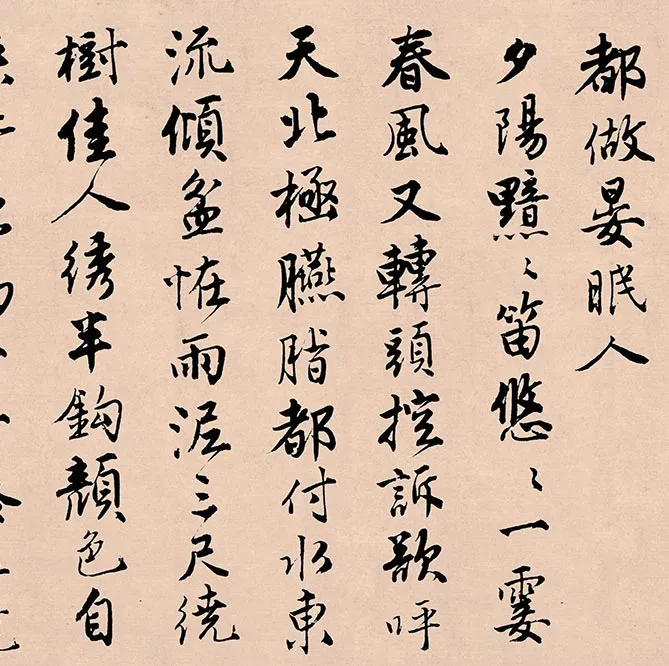 都做晏眠人
夕陽黯〻笛悠〻一霎
春風又轉頭控訴欲呼
天北極臙脂都付水東
流傾盆恠雨泥三尺繞
樹佳人綉半鈎顏色自